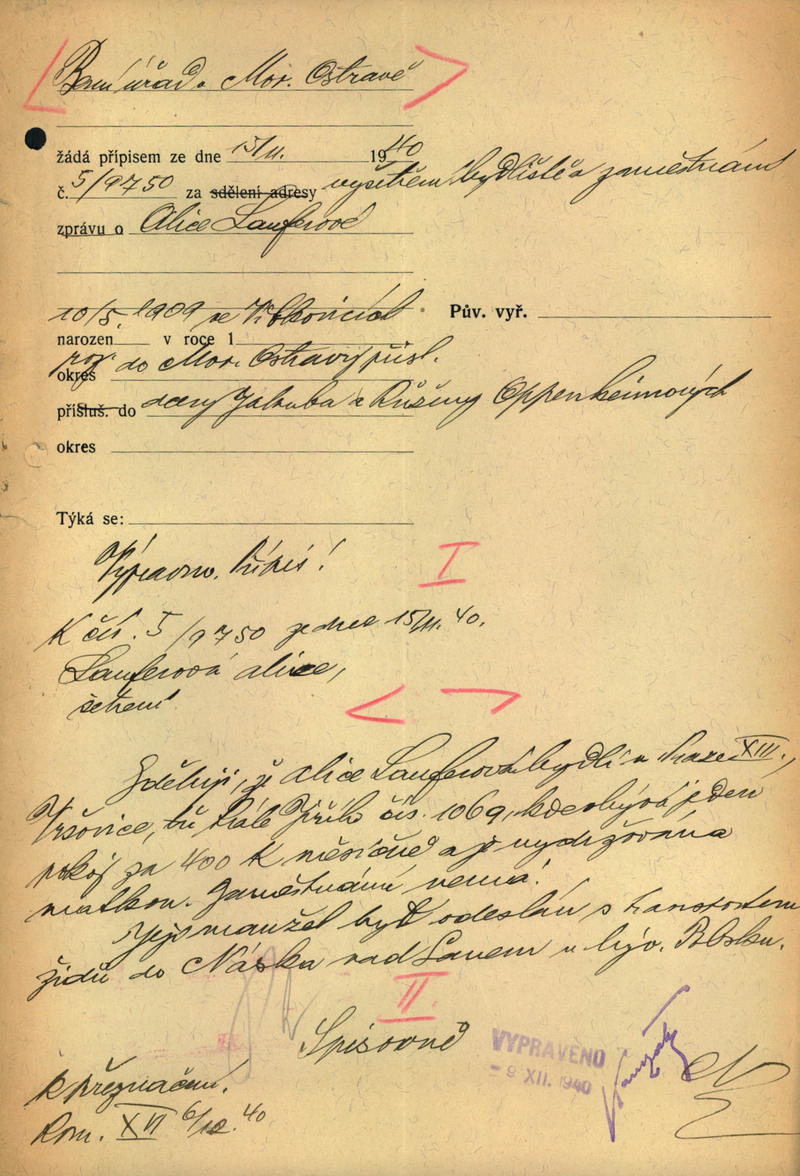 Ber. úřad v Mor. Ostravě
žádá přípisem ze dne 15/11. 1940
č. 5/9750 za sdělení adresy vyšetření bydliště a zaměstnání
zprávu o Alice Lauferové
10/5. 1909 ve Vítkovicích Pův. vyř.
narozen v roce 1
roz. do Mor. Ostravy přísl.
okres
přísluš. do dcery Jakuba a Růženy Oppenheimových
okres
Týká se:
I
K čís. 5/9750 ze dne 15/11. 40.
Lauferová Alice,
šetření.
Sděluji, že Alice Lauferová bydlí v Praze XIII.,
Vršovice, tř. Krále Jiřího čís. 1069, kde obývá jeden
pokoj za 400 K měsíčně a je vydržována
matkou. Zaměstnání nemá.
Její manžel byl odeslán s transportem
židů do Niska nad Sanem v býv. Polsku.
II
Spisovně
VYPRAVENO
- 9 XII. 1940
k přeznačení.
Kom. XVI 6/12. 40